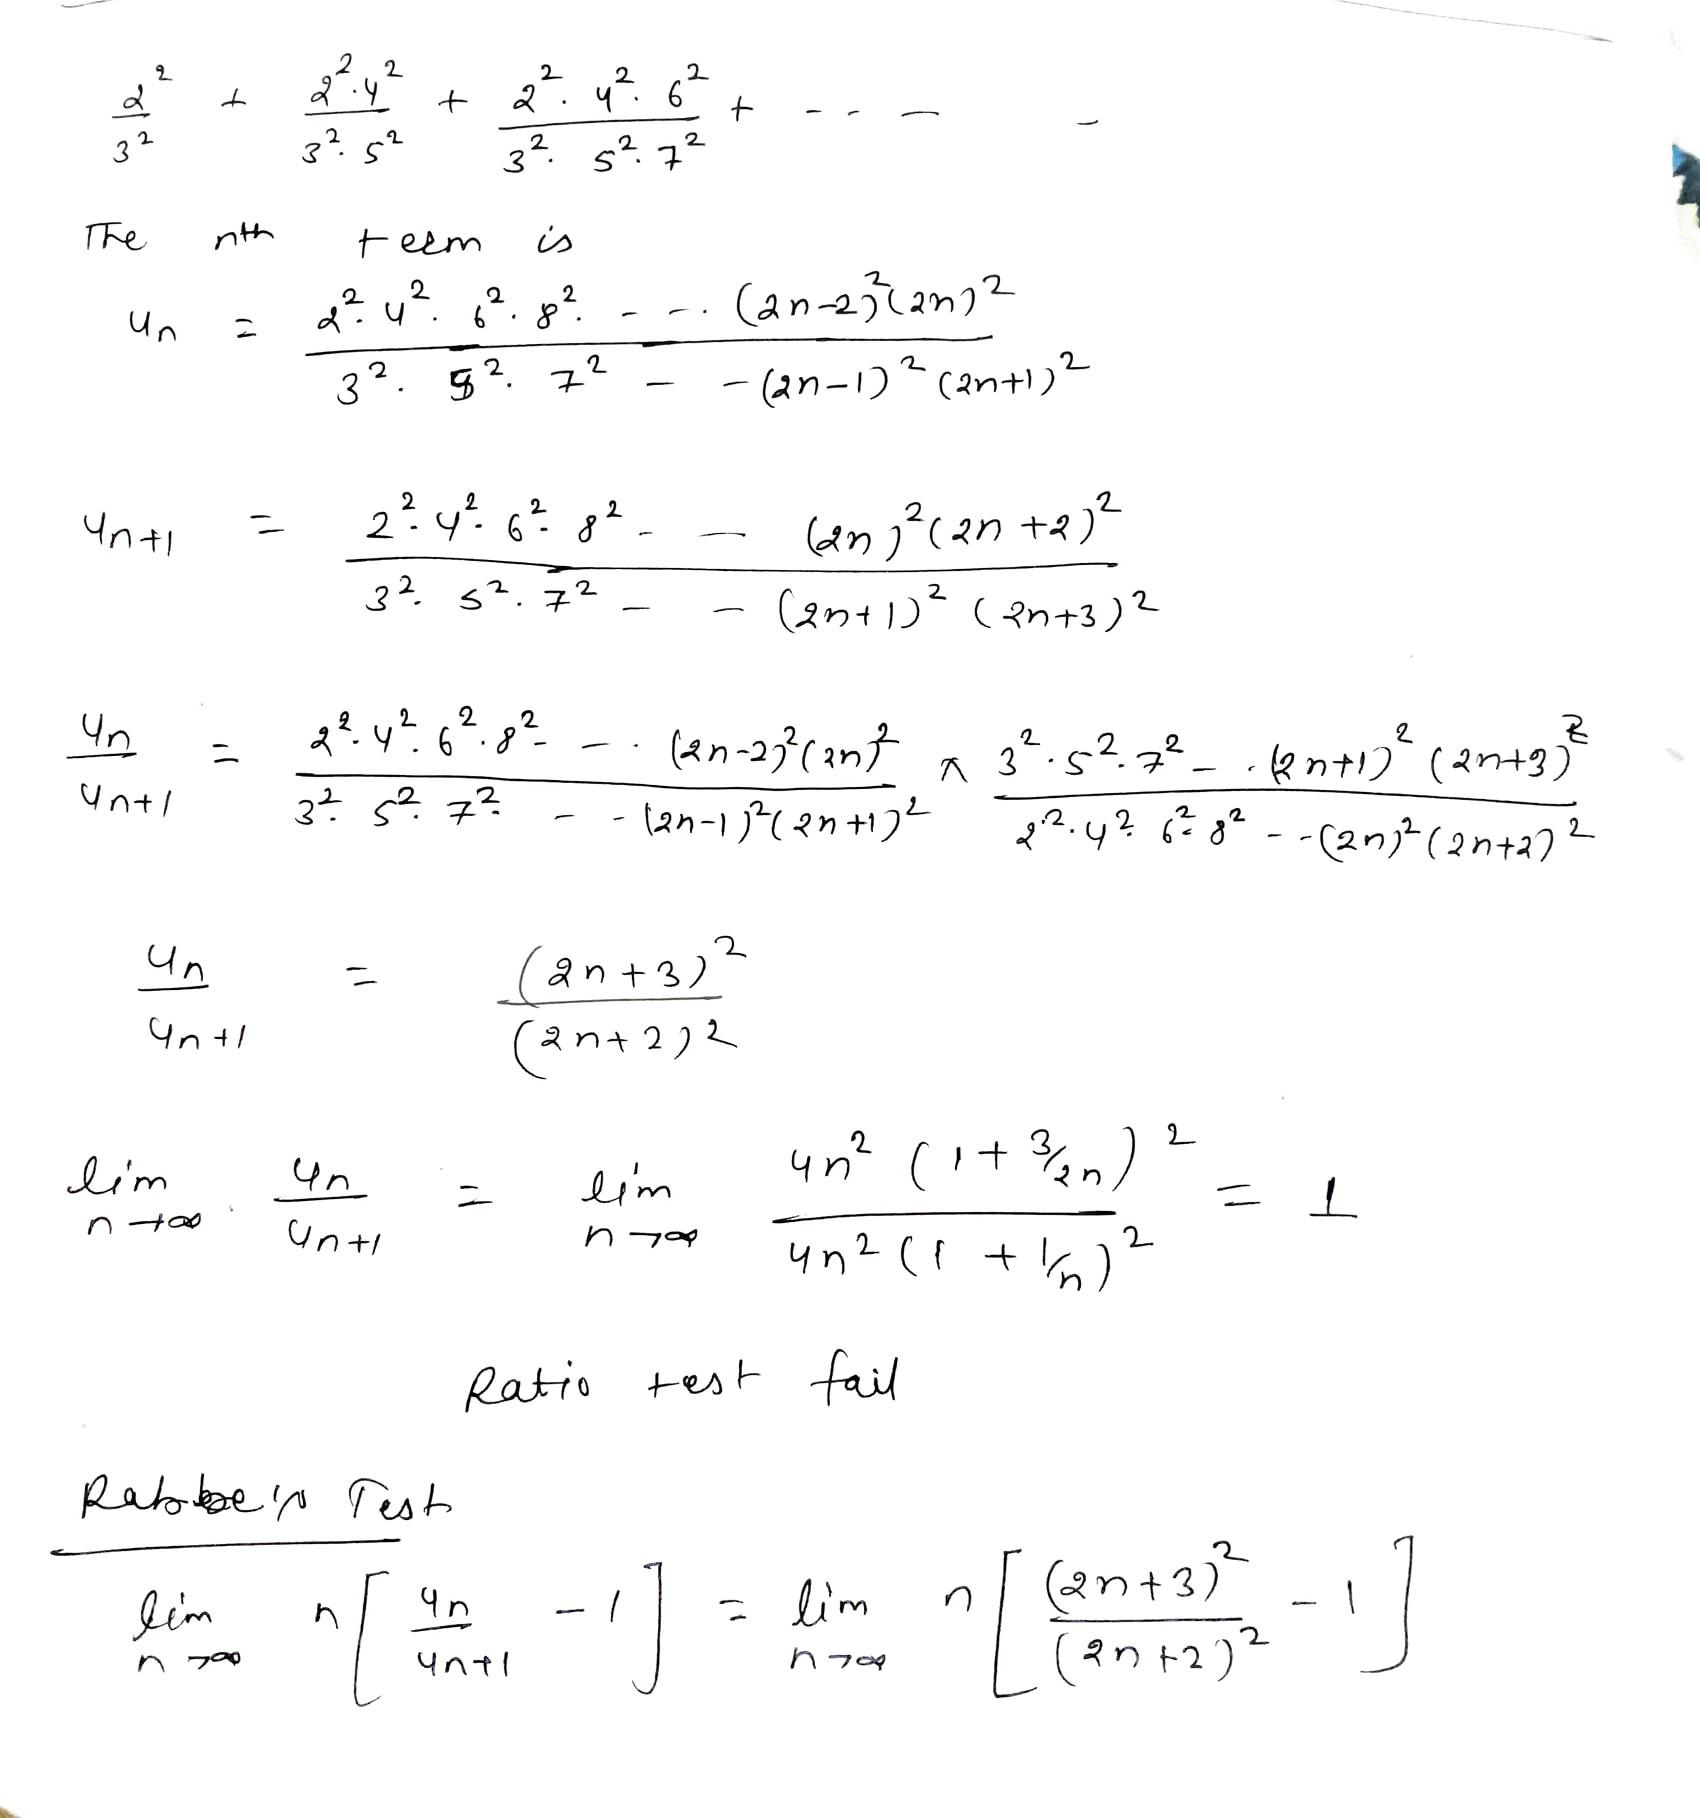 2²/3² + 2².4²/3².5² + 2².4².6²/3².5².7² + - - - -
The nth term is
un = 2².4².6².8². - - . (2n-2)²(2n)² / 3².5².7² - - (2n-1)²(2n+1)²
un+1 = 2².4².6².8² - - (2n)²(2n+2)² / 3².5².7² - - (2n+1)²(2n+3)²
un/un+1 = 2².4².6².8² - . (2n-2)²(2n)² / 3².5².7² - - (2n-1)²(2n+1)² × 3².5².7² - . (2n+1)²(2n+3)² / 2².4².6².8² - - (2n)²(2n+2)²
un/un+1 = (2n+3)²/(2n+2)²
lim n→∞ un/un+1 = lim n→∞ 4n²(1+3/2n)² / 4n²(1+1/n)² = 1
Ratio test fail
Rabbe's Test
lim n→∞ n[un/un+1 - 1] = lim n→∞ n[(2n+3)²/(2n+2)² - 1]